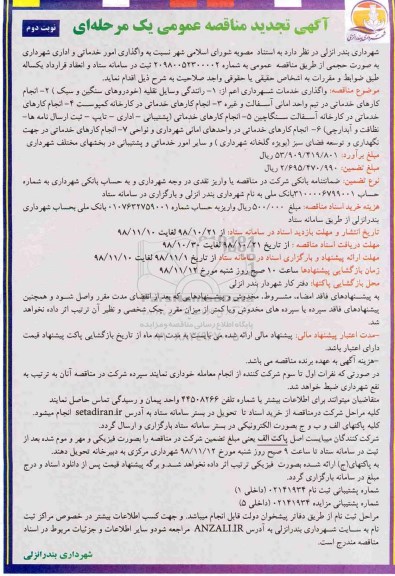 آگهی تجدید مناقصه عمومی یک مرحله‌ای
نوبت دوم
شهرداری بندر انزلی در نظر دارد به استناد مصوبه شورای اسلامی شهر نسبت به واگذاری امور خدماتی و اداری شهرداری
به صورت حجمی از طریق مناقصه عمومی به شماره ۲۰۹۸۰۰۵۲۳۰۰۰۰۲ ثبت در سامانه ستاد و انعقاد قرارداد یکساله
طبق ضوابط و مقررات به اشخاص حقیقی یا حقوقی واجد صلاحیت به شرح ذیل اقدام نماید.
موضوع مناقصه: واگذاری خدمات شهرداری اعم از: ۱- رانندگی وسایل نقلیه (خودروهای سنگین و سبک) ۲- انجام
کارهای خدماتی در تیم واحد امانی آسفالت و غیره ۳- انجام کارهای خدماتی در کارخانه کمپوست ۴- انجام کارهای
خدماتی در کارخانه آسفالت سنگاچین ۵- انجام کارهای خدماتی (پشتیبانی - اداری - تایپ - ثبت ارسال نامه ها-
نظافت و آبدارچی) ۶- انجام کارهای خدماتی در واحدهای امانی شهرداری و نواحی ۷- انجام کارهای خدماتی در جهت
نگهداری و توسعه فضای سبز (بویژه گلخانه شهرداری) و سایر امور خدماتی و پشتیبانی در بخشهای مختلف شهرداری
مبلغ برآورد: ۵۳/۹۰۹/۴۱۹/۸۰۱ ریال
مبلغ تضمین: ۲/۶۹۵/۴۷۰/۹۹۰ ریال
نوع تضمین: ضمانتنامه بانکی شرکت در مناقصه یا واریز نقدی در وجه شهرداری و به حساب بانکی شهرداری به شماره
حساب ۳۱۰۰۰۰۶۷۹۹۰۰۱ بانک ملی به نام شهرداری بندر انزلی و بارگزاری در سامانه ستاد
هزینه خرید اسناد مناقصه: مبلغ ۵۰۰/۰۰۰ ریال واریزبه حساب شماره ۰۱۰۷۶۳۲۷۵۹۰۰۱ بانک ملی بحساب شهرداری
بندرانزلی از طریق سامانه ستاد
تاریخ انتشار و مهلت بازدید اسناد در سامانه ستاد: از ۹۸/۱۰/۲۱ لغایت ۹۸/۱۱/۱۰
مهلت دریافت اسناد مناقصه: از تاریخ ۹۸/۱۰/۲۱ لغایت ۹۸/۱۰/۳۰
مهلت ارائه پیشنهاد و بارگزاری اسناد در سامانه ستاد از تاریخ ۹۸/۱۱/۱ لغایت ۹۸/۱۱/۱۰
زمان بازگشایی پیشنهادها ساعت ۱۰ صبح روز شنبه مورخ ۹۸/۱۱/۱۲
محل بازگشایی پاکتها: دفتر کار شهردار بندر انزلی
به پیشنهادهای فاقد امضاء، مشروط، مخدوش و پیشنهادهایی که بعد از انقضای مدت مقرر واصل شود و همچنین
پیشنهادهای فاقد سپرده یا سپرده های مخدوش ویا کمتر از میزان مقرر، چک شخصی و نظیر آن ترتیب اثر داده نخواهد
شد.
-مدت اعتبار پیشنهاد مالی: پیشنهاد مالی ارائه شده می بایست به مدت سه ماه از تاریخ بازگشایی پاکت پیشنهاد قیمت
دارای اعتبار باشد.
-هزینه آگهی به عهده برنده مناقصه می باشد.
در صورتی که نفرات اول تا سوم شرکت کننده از انجام معامله خوداری نمایند سپرده شرکت در مناقصه آنان به ترتیب به
نفع شهرداری ضبط خواهد شد.
متقاضیان میتوانند برای اطلاعات بیشتر با شماره تلفن ۴۴۵۰۸۲۶۶ واحد پیمان و رسیدگی تماس حاصل نمایند
کلیه مراحل شرکت درمناقصه از خرید اسناد تا تحویل در بستر سامانه ستاد به آدرس setadiran.ir انجام میشود.
کلیه پاکتهای الف و ب و ج بصورت الکترونیکی در بستر سامانه ستاد بارگزاری و ارسال گردد.
شرکت کنندگان میبایست اصل پاکت الف یعنی مبلغ تضمین شرکت در مناقصه را بصورت فیزیکی و مهر و موم شده بعد از
ثبت در سامانه ستاد تا ساعت ۹ صبح روز شنبه مورخ ۹۸/۱۱/۱۲ شهرداری مرکزی به دبیرخانه تحویل دهند.
به پاکتهای(ج) ارائه شده بصورت فیزیکی ترتیب اثر داده نخواهد شد.و برگه پیشنهاد قیمت پس از دانلود اسناد و درج
مبلغ در سامانه بارگزاری گردد.
شماره پشتیبانی ثبت نام ۰۲۱۴۱۹۳۴ (داخلی ۱)
شماره پشتیبانی مزایده ۰۲۱۴۱۹۳۴ (داخلی ۵)
مراحل ثبت نام از طریق دفاتر پیشخوان دولت قابل انجام میباشد. و جهت کسب اطلاعات بیشتر در خصوص مراکز ثبت
نام به سایت شهرداری بندرانزلی به آدرس ANZALI.IR مراجعه شودو سایر اطلاعات و جزئیات مربوط در اسناد
مناقصه مندرج است.
شهرداری بندرانزلی